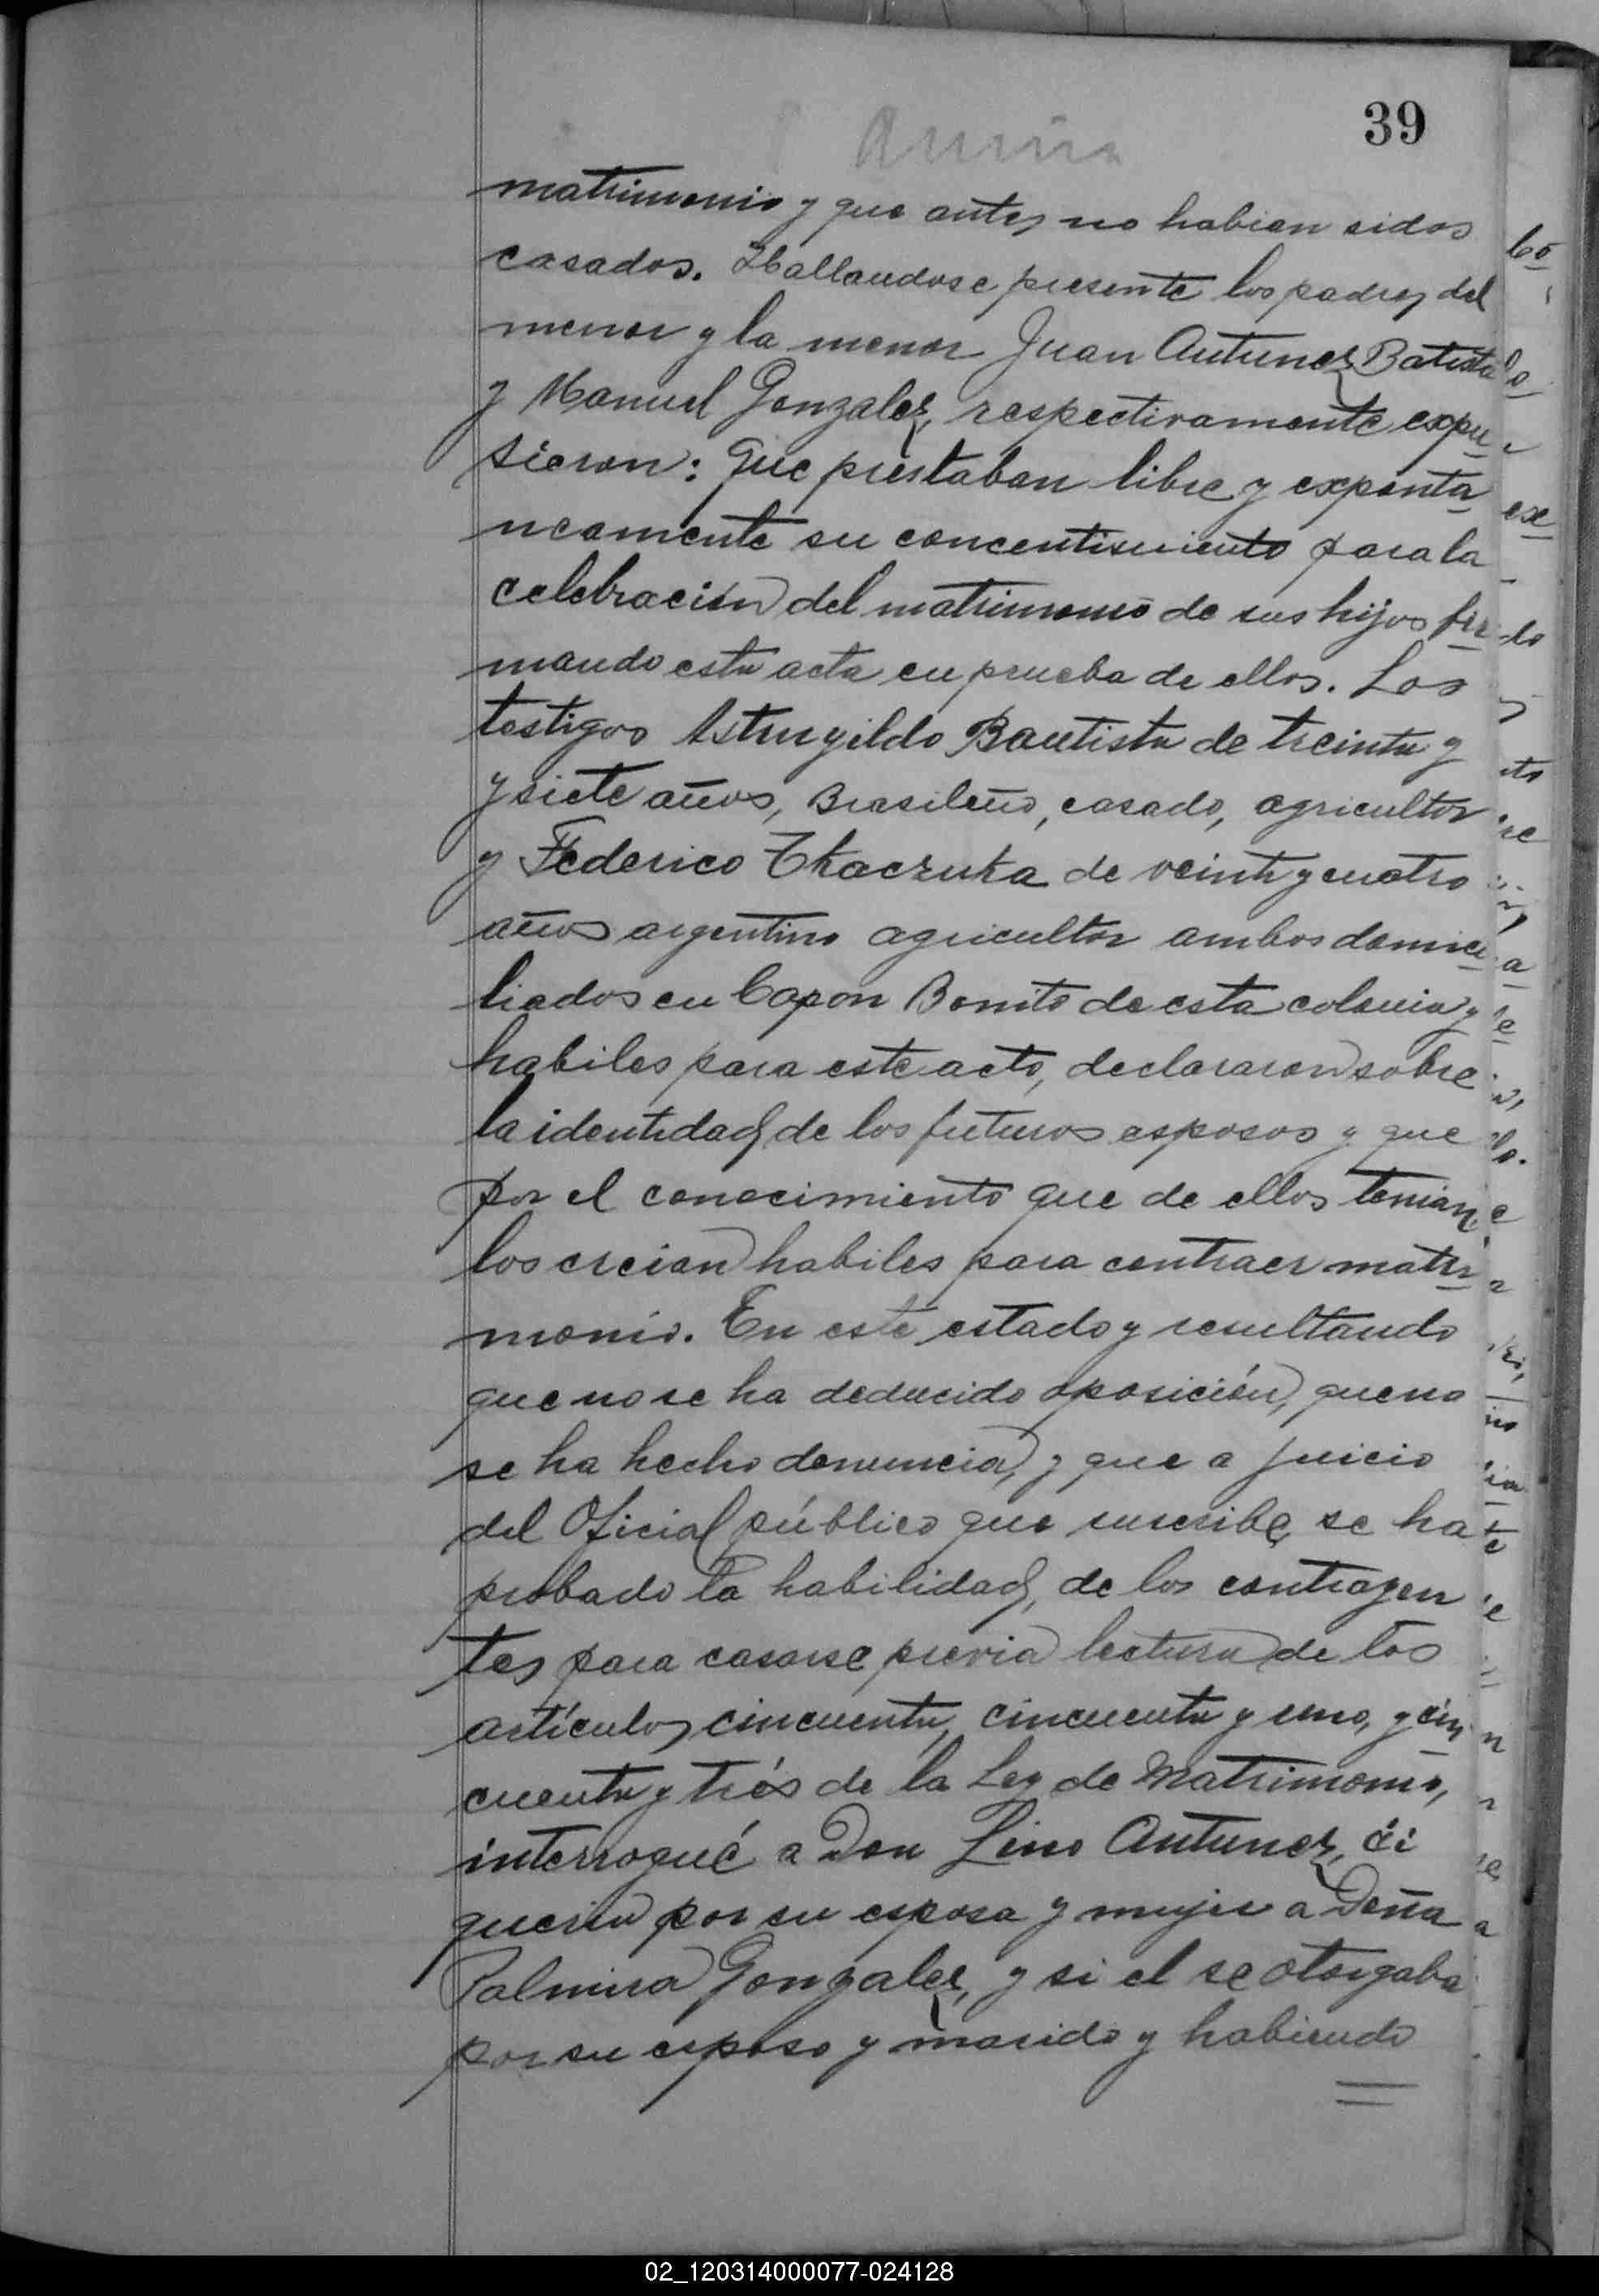 39
matrimonio y que antes no habian sidos
casados. Hallandose presente los padres del
menor y la menor Juan Antunez Batista
y Manuel Gonzalez, respectivamente expu
sieron: que prestaban libre y exponta
neamente su concentimiento para la
celebración del matrimonio de sus hijos fir
mando esta acta en prueba de ellos. Los
testigos Astrugildo Bautista de treinta y
y siete años, Brasileño, casado, agricultor
y Federico Tkaczuka de veinte y cuatro
años argentino agricultor ambos domici
liados en Capon Bonito de esta colonia y
habiles para este acto, declararon sobre
la identidad de los futuros esposos y que
por el conocimiento que de ellos tenian,
los creian habiles para contraer matri
monio. En este estado y resultando
que no se ha deducido oposición, que no
se ha hecho denuncia, y que a juicio
del Oficial público que suscribe, se ha
probado la habilidad, de los contrayen
tes para casarse previa lectura de los
artículos cincuenta, cincuenta y uno, y cin
cuenta y trés de la Ley de Matrimonio,
interrogué a Don Lino Antunez, si
queria por su esposa y mujer a Doña
Palmira Gonzalez, y si el se otorgaba
por su esposo y marido y habiendo
02_120314000077-024128